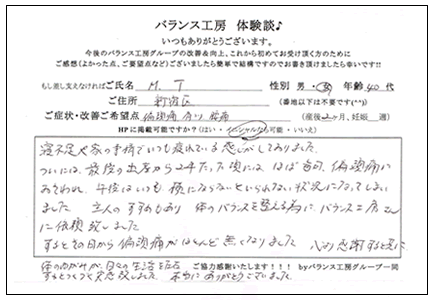 バランス工房 体験談♪
いつもありがとうございます。
今後のバランス工房グループの改善&向上、これから初めてお受け頂く方のために
ご感想(よかった点、ご要望点など)ございましたら簡単で結構ですのでお書き頂けましたら幸いです!!
もし差し支えなければご氏名 M. T 性別 男・女 年齢 40代
ご住所 新宿区 (番地以下は不要です(^^))
ご症状・改善ご希望点 偏頭痛 肩こり 腰痛 (産後2ヶ月、妊娠 週)
HPに掲載可能ですか?(はい・イニシャルなら可能・いいえ)
寝不足や家の事情でいつも疲れている感じがしておりました。
ついには、最後の出産から2年たった頃には、ほぼ毎日、偏頭痛に
おそわれ、午後はいつも横にならないといられない状況になってしまい
ました。主人のすすめもあり、体のバランスを整える為に、バランス工房さん
に依頼致しました。
するとその日から偏頭痛がほとんど無くなりました。心より感謝すると共に
体のゆがみが、日々の生活を左右
するとつくづく実感致しました。本当にありがとうございました。
ご協力感謝いたします!!! byバランス工房グループ一同